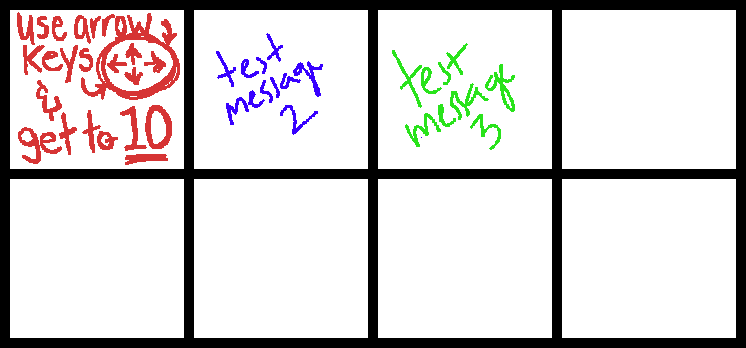 use arrow
keys
&
get to 10
test
message
2
test
message
3